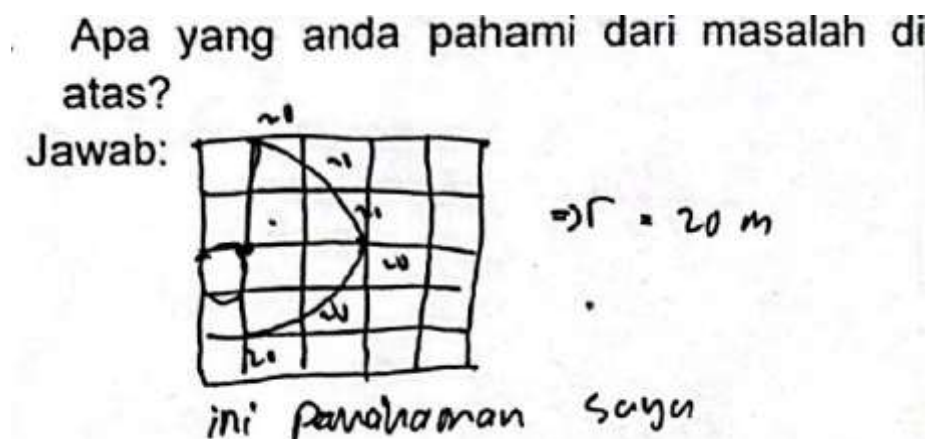 Apa yang anda pahami dari masalah di
atas?
Jawab:
20
20
20
⇒ r = 20 m
20
20
20
ini pemahaman saya